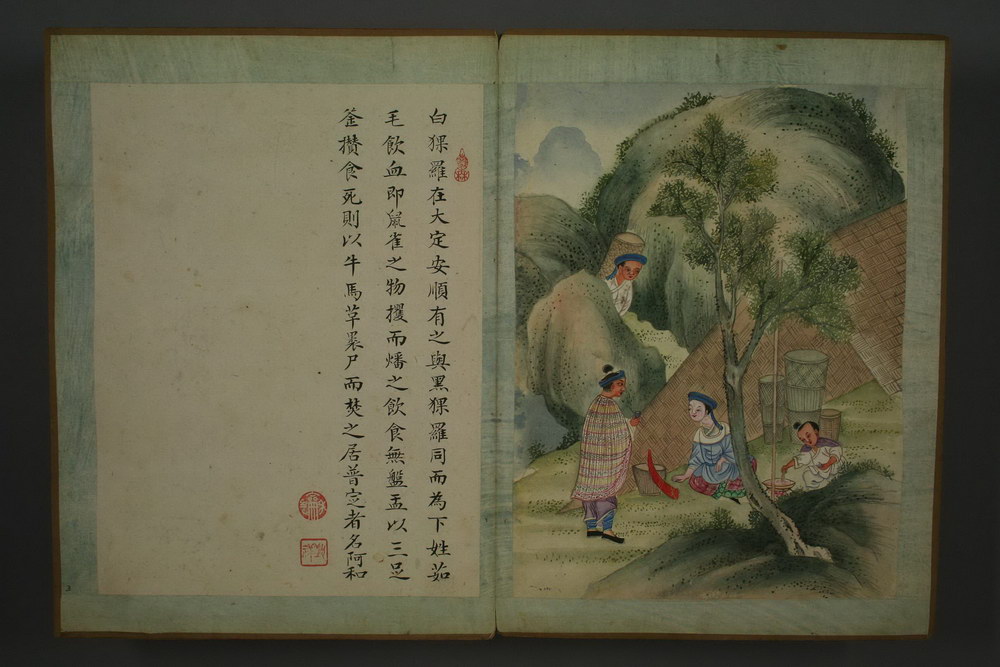 白猓羅在大定安順有之與黑猓羅同而為下姓茹
毛飲血即鼠雀之物攫而燔之飲食無盤盂以三足
釜攅食死則以牛馬草裹尸而焚之居普定者名阿和